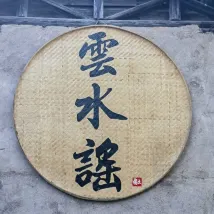 雲水謠